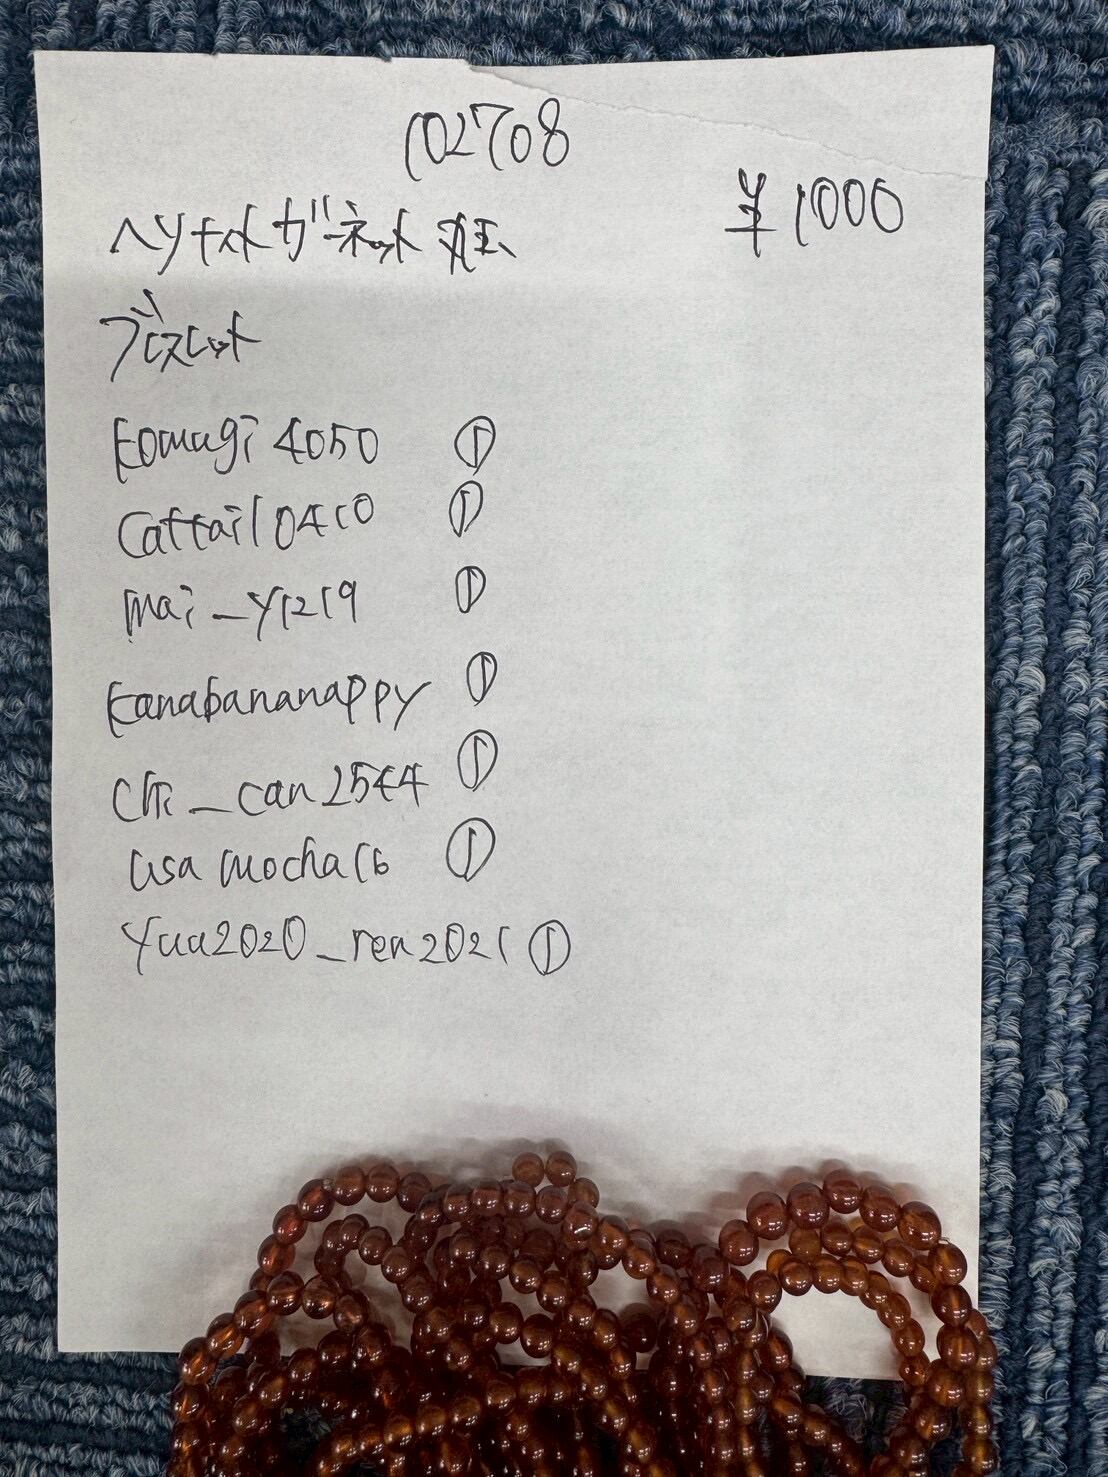 102708
¥1000
ヘソナイトガーネット
ブレスレット
komugi4050 ①
Cattail0410 ①
mai_y1219 ①
kanabananappy ①
chi_can2544 ①
usamocha16 ①
yua2020_ren2021 ①